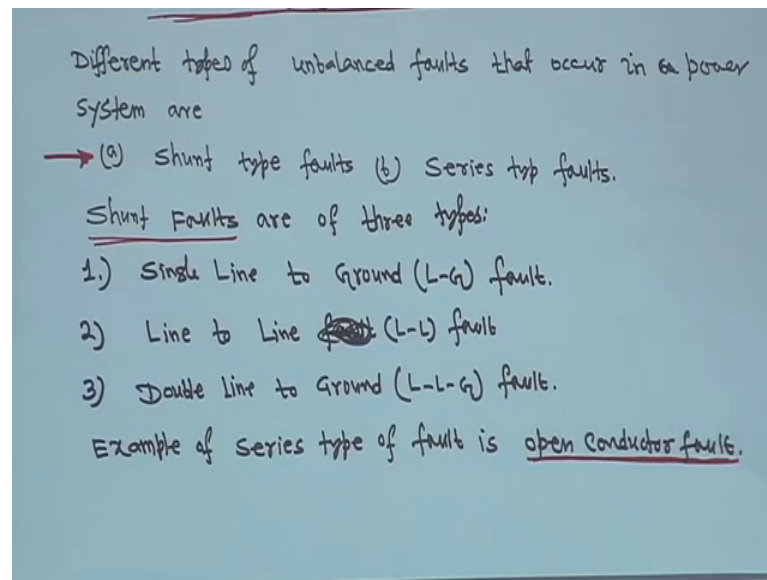 Different types of unbalanced faults that occur in a power
system are
(a) Shunt type faults (b) Series typ faults.
Shunt Faults are of three types:
1.) Single Line to Ground (L-G) fault.
2) Line to Line (L-L) fault
3) Double Line to Ground (L-L-G) fault.
Example of series type of fault is open conductor fault.